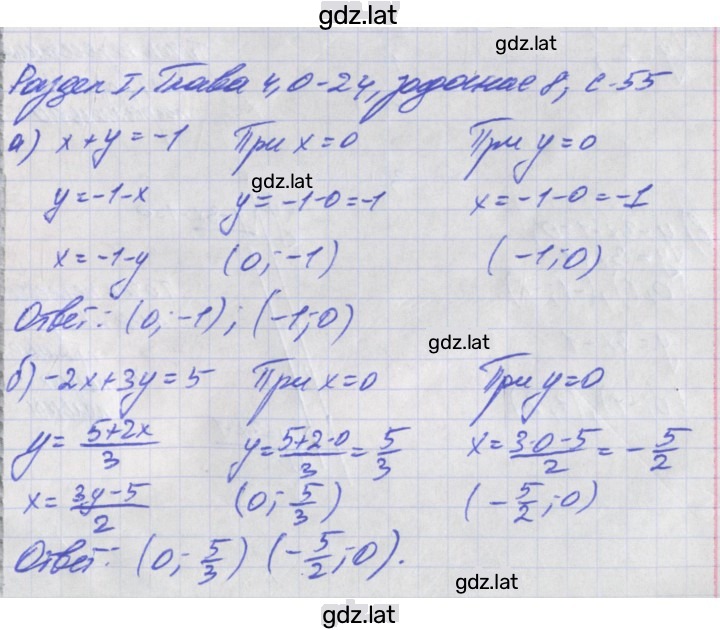 gdz.lat
gdz.lat
Раздел I, Глава 4, О-24, задание 8, с-55
а) x+y=-1 При x=0 При y=0
gdz.lat
y=-1-x y=-1-0=-1 x=-1-0=-1
x=-1-y (0;-1) (-1;0)
Ответ: (0;-1); (-1;0)
gdz.lat
б) -2x+3y=5 При x=0 При y=0
y=\frac{5+2x}{3} y=\frac{5+2·0}{3}=\frac{5}{3} x=\frac{3·0-5}{2}=-\frac{5}{2}
x=\frac{3y-5}{2} (0;\frac{5}{3}) (-\frac{5}{2};0)
Ответ: (0;\frac{5}{3}) (-\frac{5}{2};0).
gdz.lat
gdz.lat